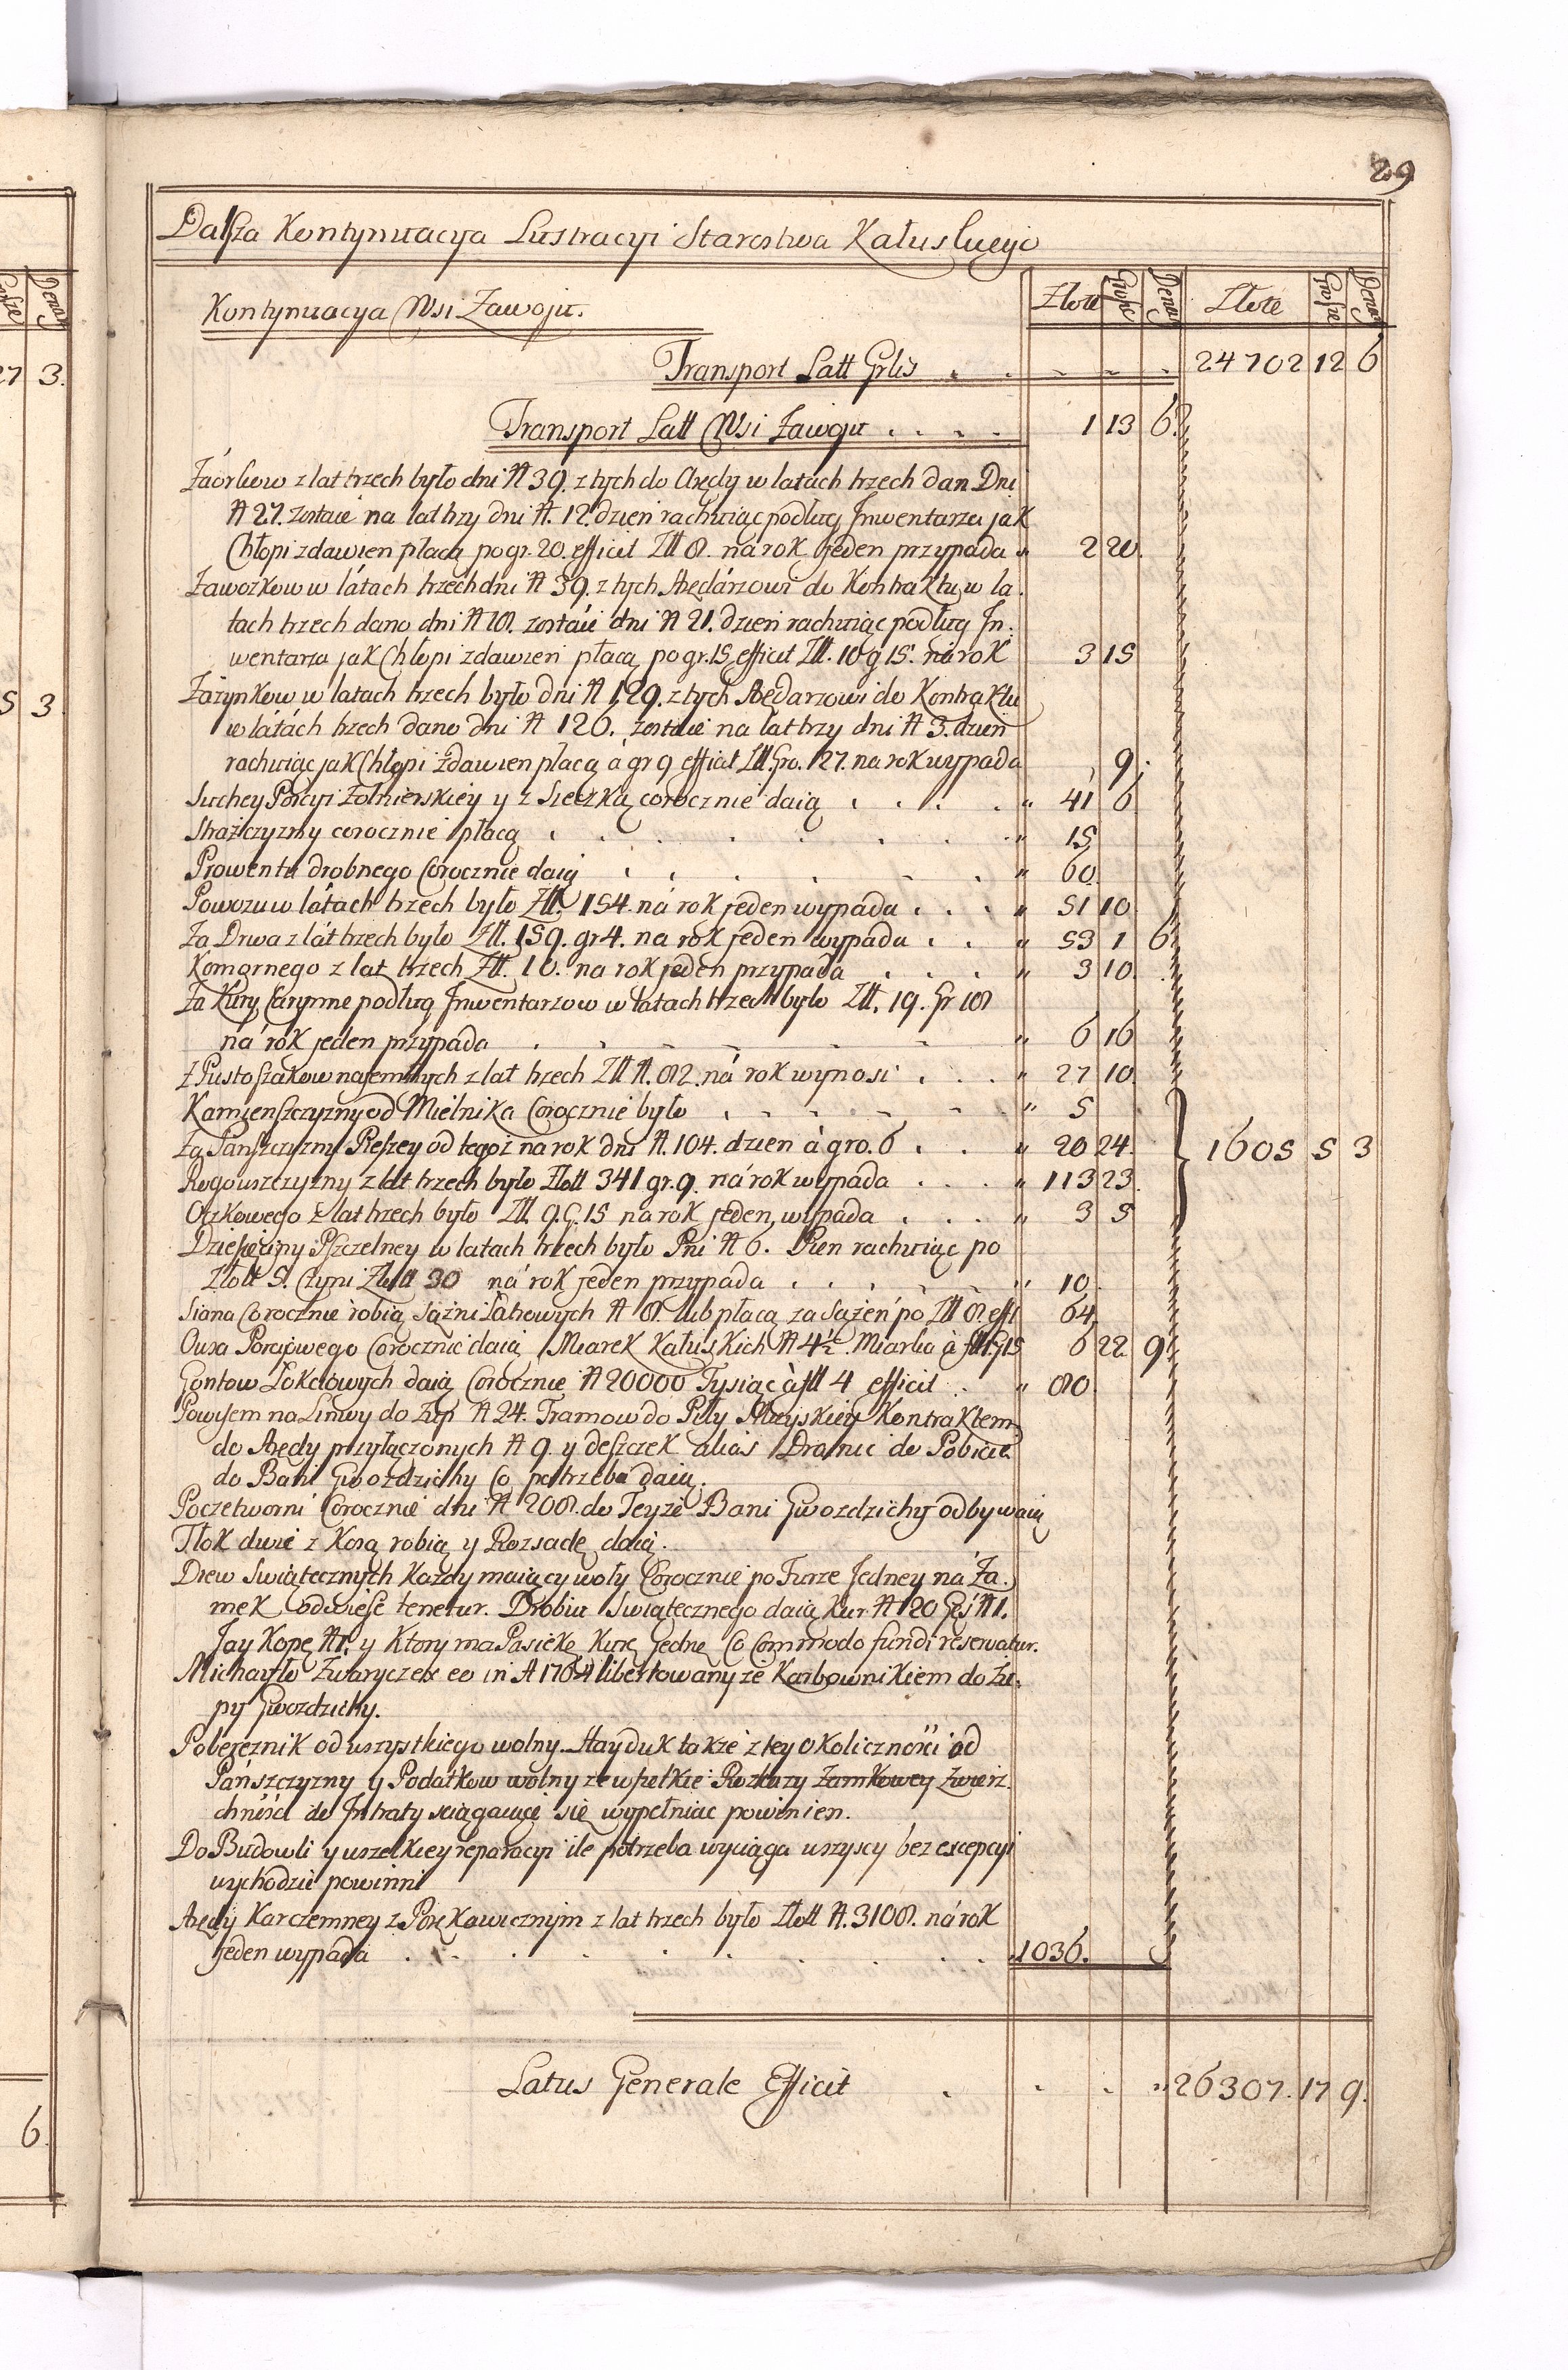 29
Dalsza Kontynuacya Lustracyi Starostwa Kałuskiego
Kontynuacya Wsi Zawoju. Złote Grosze Denar Złote Grosze Denar
Transport Latt Grlis . . 24702 12 6
Transport Latt Wsi Zawoju . . . . 1 13 6
Zaorkow z lat trzech było dni N 39. z tych do Arędy w latach trzech dan Dni
N 27. zostaie na lat trzy dni N. 12. dzien rachuiąc podług Inwentarza jak
Chłopi zdawien płacą po gr. 20. efficit Złł 8. na rok jeden przypada " 2 20.
Zawozkow w látach trzech dni N 39. z tych Arędárzowi do Kontraktu w la.
tach trzech dano dni N 18. zostáie dni N 21. dzien rachuiąc podług In.
wentarza jak Chłopi zdawien płacą po gr. 15. efficit Złł. 10 g 15. na rok 3 15
Zazynkow w latach trzech było dni N 129. z tych Arędarzowi do Kontraktu
w látach trzech dano dni N 126. zostaie na lat trzy dni N 3. dzien
rachuiąc jak Chłopi zdawien płacą á gr 9 efficit Złł. Gro. 27. na rok wypada 9.
Suchey Porcyi Zołnierskiey y z Sieczką corocznie daią . . . . " 41 6
Strażczyzny corocznie płacą . . . . . . . " 15
Prowentu drobnego Corocznie daią . . . . . . " 60.
Powozu w látach trzech było Złł. 154. ná rok jeden wypada . . . " 51 10
Za Drwa z lát trzech było Złł. 159. gr 4. na rok jeden wypada . . " 53 1 6
Komornego z lat trzech Złł. 10. na rok jeden przypada . . . . " 3 10.
Za Kury Czynne podług Inwentarzow w latach trzech było Złł. 19. Gr 18
ná rok jeden przypada . . . . . . " 6 16
Z Pustoszakow najemnych z lat trzech Złł N. 82. ná rok wynosi . . . " 27 10.
Kamienszczyzny od Mielnika Corocznie było . . . . . " 5
Za Panszczyzny Pieszey od tegoż na rok dni N. 104. dzien á gro. 6 . . " 20 24. 1605 5 3
Rogouszczyzny z lat trzech było Złott 341 gr. 9. ná rok wypada . . . . " 113 23.
Oczkowego z lat trzech było Złł. 9. G. 15 na rok jeden wypada . . . " 3 5
Dziesięciny Pszczelney w latach trzech było Pni N 6. Pien rachuiąc po
Złott 5. Czyni Złott 30 ná rok jeden przypada . . . . . . " 10.
Siana Corocznie robią sążni Łatrowych N 8. lub płacą za Sążeń po Złł 8. effi 64.
Owsa Porcyowego Corocznie daią Miarek Kałuskich N 4½. Miarka á fll 1 g 15 6 22. 9
Gontow Łokciowych daią Corocznie N 20000 Tysiąc á fll 4 efficit . . " 80.
Powysem na Linwy do Zup N 24. Tramow do Piły Kontraktem
do Arędy przyłączonych N 9. y deszczek alias Dranic do Pobicia
do Bani Gwozdzichy Co potrzeba daią.
Poczetworni Corocznie dni N 208. do Teyże Bani Gwozdzichy odbywaią
Tłok dwie z Kosą robią y Rozsadę daią.
Drew Swiątecznych Kazdy maiący woły Corocznie po Furze Jedney ná Za.
mek odwieść tenetur. Drobiu Swiątecznego daią Kur N 20 Gęś N 1.
Jay Kopę N 1. y Ktory ma Pasiekę Kurę jednę Co Commodo fundi reservatur.
Michayło Zwaryczex eo in A 1764 libertowany ze Karbownikiem do Zu.
py Gwozdzichy.
Pobereznik od wszystkiego wolny. Hayduk także z tey okoliczności od
Pańszczyzny y Podatkow wolny ze wszelkie Rozkazy Zamkowey Zwierz.
chności do Intraty sciągaiące się wypełniac powinien.
Do Budowli y wszelkiey reparacyi ile potrzeba wyciąga wszyscy bez excepcyi
wychodzić powinni
Arędy Karczemney z Porękawicznym z lat trzech było Złott N. 3108. ná rok
jeden wypada . . . . . . . . . 1036.
Latus Generale Efficit . . . " 26307. 17 9.
27 3.
5 3
6.